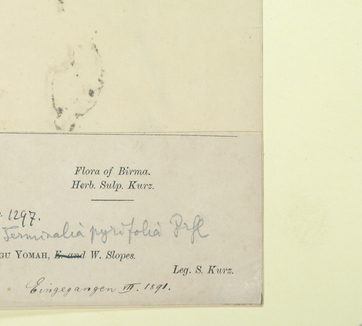 Flora of Birma.
Herb. Sulp. Kurz.
1297.
Terminalia pyrifolia
GU YOMAH, E. and W. Slopes.
Leg. S. Kurz.
Eingegangen VII. 1891.